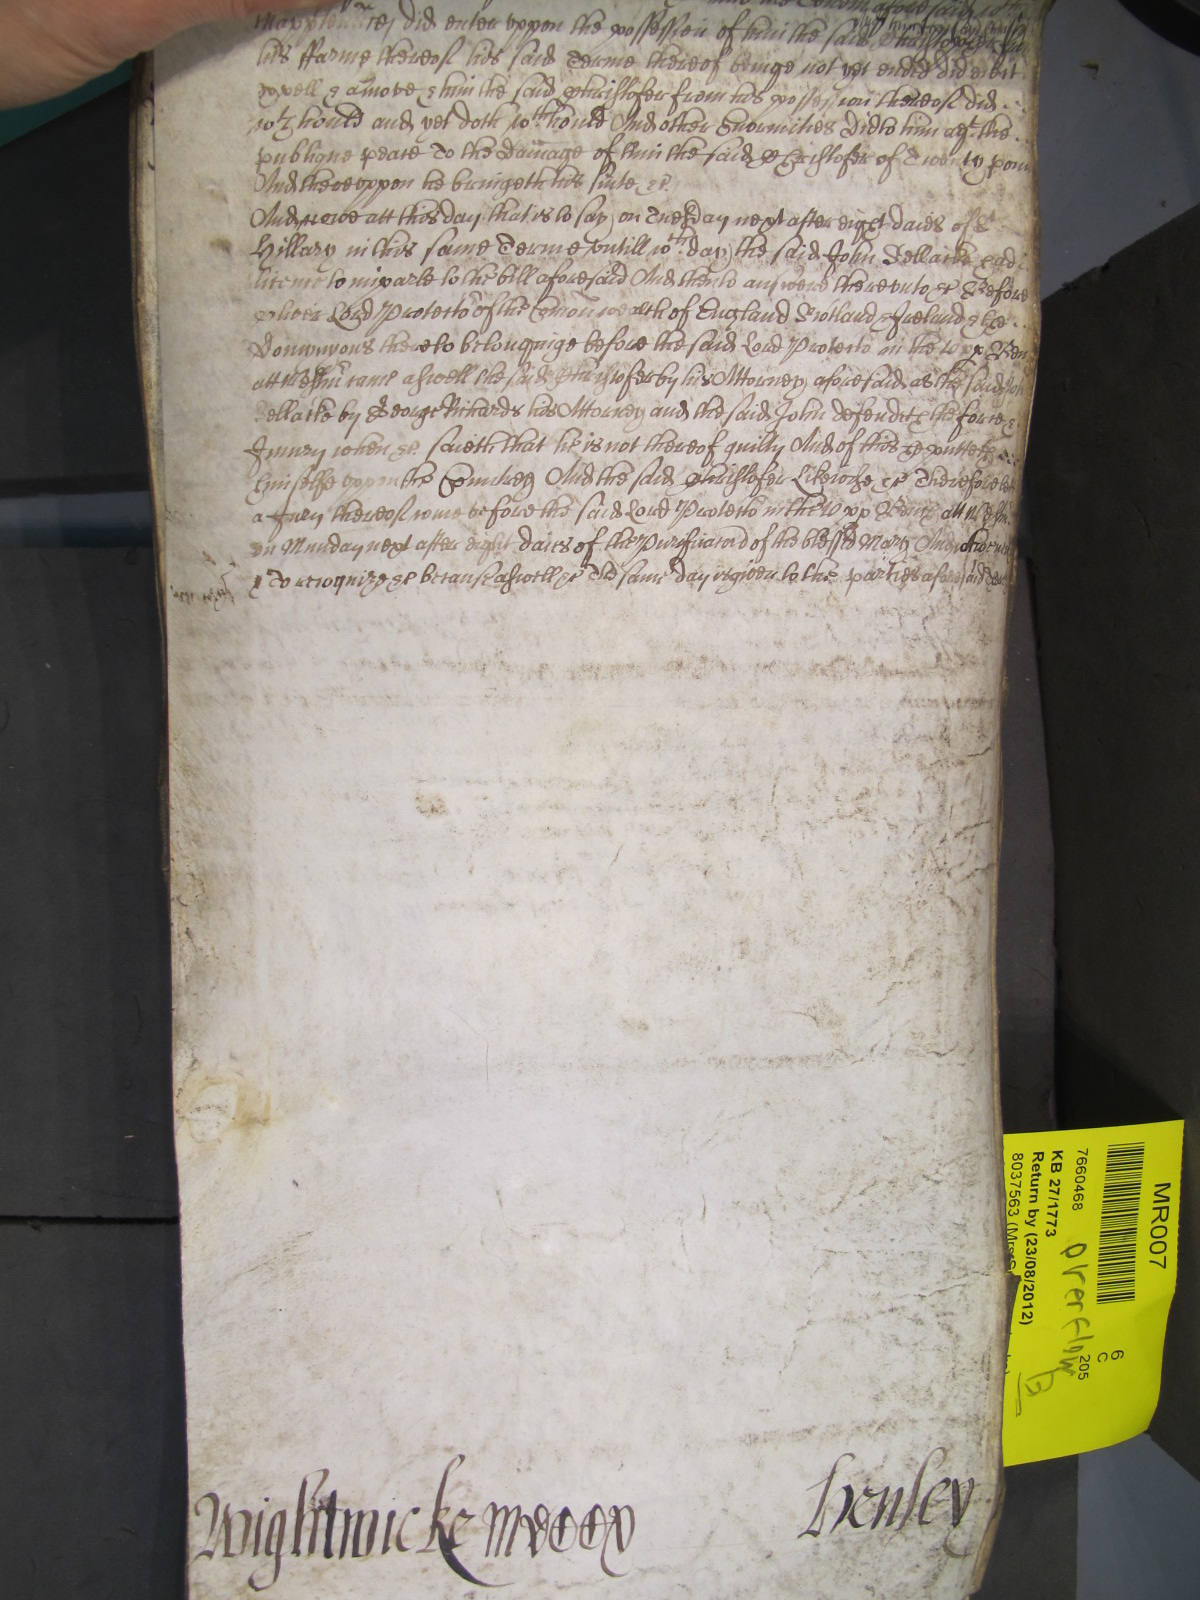 did enter vppon the possession of him the said
his ffarme thereof his said Terme thereof beinge not yet ended did eiect
expell & amove & him the said Christofer from his possession thereof did
wthhould and yet doth wthhould And other Enormities did to him agt the
publique peace To the damage of him the said Christofer of Twenty
And therevppon he bringeth his suite &c
And nowe att this day that is to say on Tuesday next after eight daies of st
Hillary in this same Terme vntill wch day the said John had
licence to imparle to the bill aforesaid And then to answere therevnto &c Before
Oliver Lord Protector of the Comon wealth of England Scotland & Ireland & the
Dominions thereto belonginge before the said Lord Protector in the vpp
att Westmr came aswell the said Christofer by his Attorney aforesaid as the said
by George Richards his Attorney and the said John defendeth the force &
Iniury when &c saieth that he is not thereof guilty And of this he putteth
himselfe vppon the Countrey And the said Christofer likewise &c Therefore let
a Jury thereof come before the said Lord Protector in the vpp Bench att
on Munday next after eight daies of the Purificacon of the blessed Mary And who
To recognize &c because aswell &c The same day is given to the parties aforesaid
Wightwicke
Henley
MR007
7660468
KB 27/1773
Return by (23/08/2012)
8037563
overflow
6
C
205
B